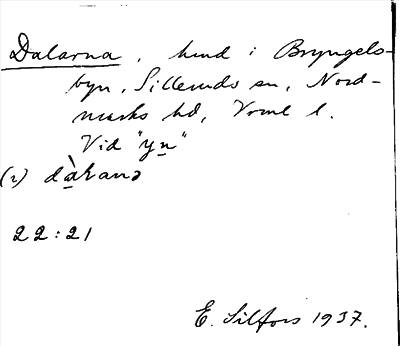 Dalarna, hmd i Bryngels-
byn, Silleruds sn, Nord-
marks hd, Vrml l.
Vid "yn"
(2) dàɽanə
22:21
E. Silfors 1937.